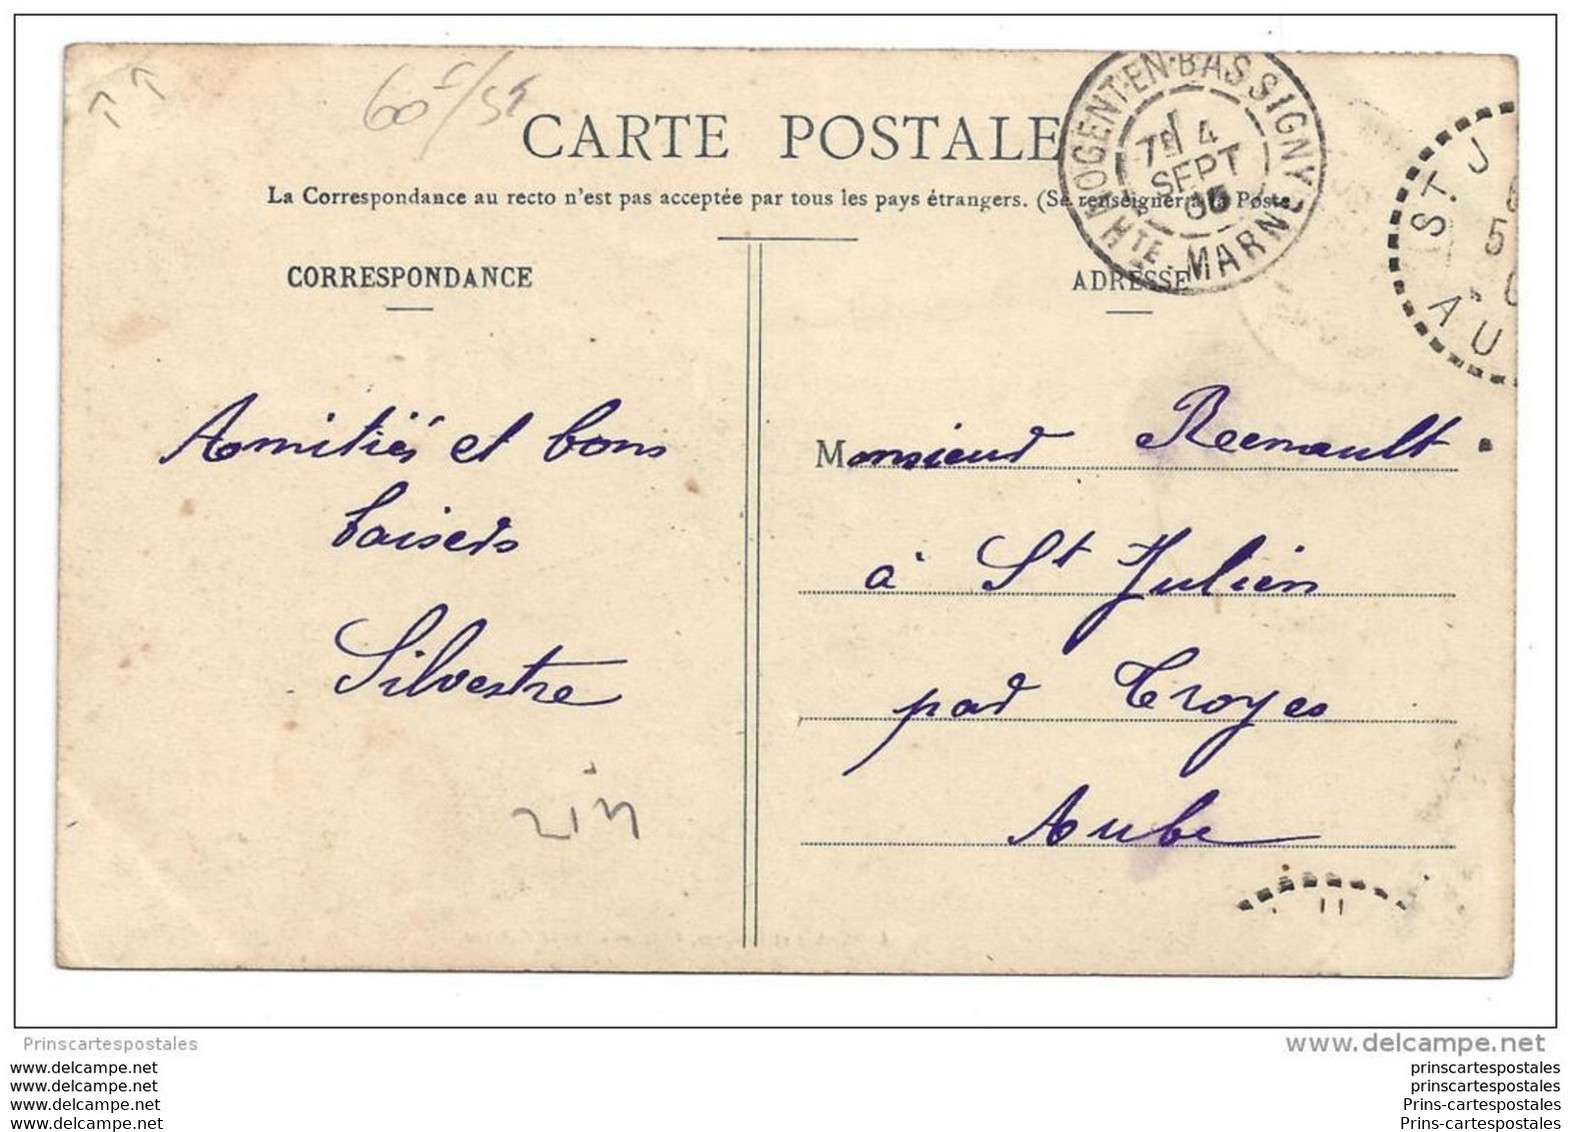 60F/35
CARTE POSTALE
La Correspondance au recto n'est pas acceptée par tous les pays étrangers. (Se renseigner à la Poste.)
NOGENT-EN-BASSIGNY
7E 4
SEPT
HTE MARNE
ST. J
5
AU
CORRESPONDANCE
ADRESSE
Amitiés et bons
baisers
Silvestre
Monsieur Reenault
à St Julien
par Troyes
Aube
Prinscartespostales
www.delcampe.net
www.delcampe.com
www.delcampe.com
www.delcampe.com
www.delcampe.com
prinscartespostales
prinscartespostales
Prins-cartespostales
Prins-cartespostales